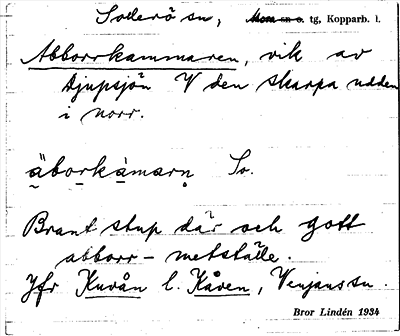 Soderö sn, Mora sn o. tg, Kopparb. l.
Abborrkammaren, vik av
Djupsjön V den skarpa udden
i norr.
äborkámarn So.
Brant stup där och gott
abborr-metställe.
Jfr Kuvån l. Kåven, Venjans sn.
Bror Lindén 1934